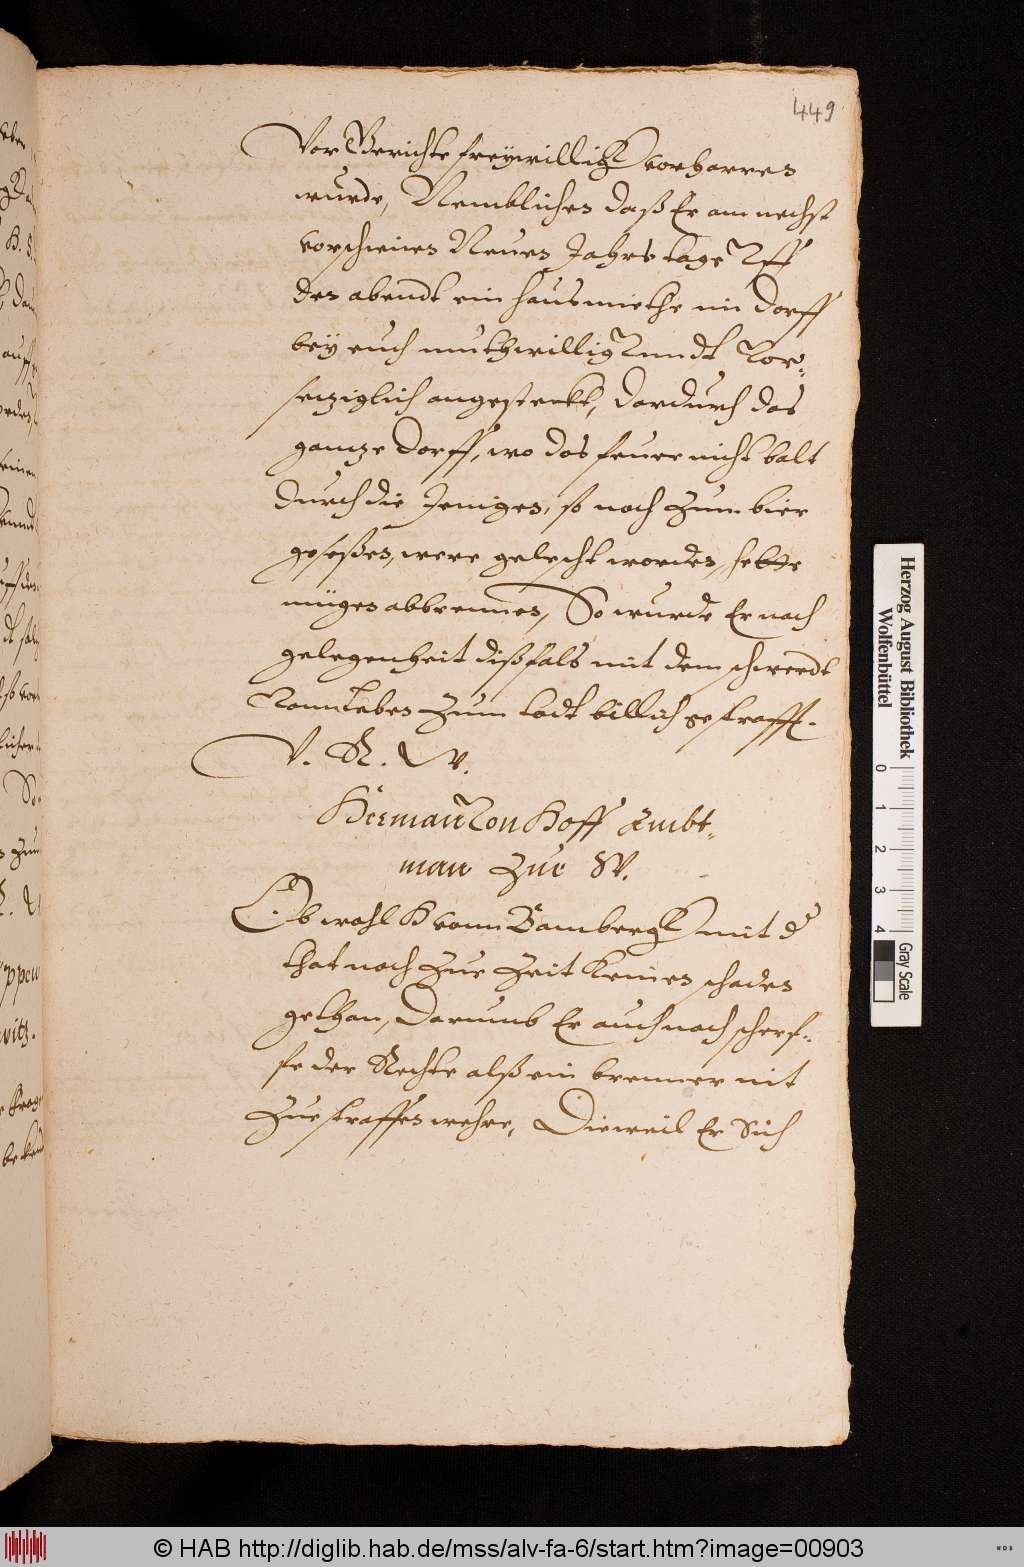 449
Vor Gerichte freywillig vorharren
wurde, Nemblichen daß Er am nechst
vorschienen Neuen Jahrs tage Vff
den abendt ein hausmiethe im dorff
bey euch muthwillig Vnndt Vor-
seziglich angesteckt, dardurch das
gantze dorff, wo das feuer nicht balt
durch die Jenigen, so noch zum bier
gesessen, were gelescht worden, hette
mügen abbrennen, So wurde Er nach
gelegenheit dißfals mit dem schwerdt
Vonn Leben zum todt billich gestrafft.
V. R. W.
Herman Von Hoff Ambt-
man zur W.
Ob wohl H vonn Bamberg mit d
that noch zur Zeit keinen schaden
gethan, Darumb Er auch nach scherf-
fe der Rechte alß ein brenner nit
zu straffen wehre, Dieweil Er Sich
Herzog August Bibliothek
Wolfenbüttel
0 1 2 3 4
Gray Scale
© HAB http://diglib.hab.de/mss/alv-fa-6/start.htm?image=00903